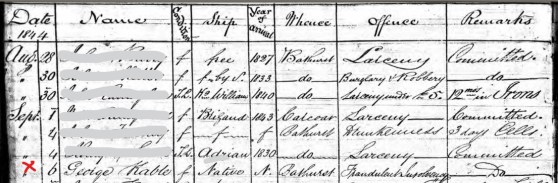 Date Name Condition Ship Year of arrival Whence Offence Remarks
1844
Augt 28 f free 1837 Bathurst Larceny Committed
" 30 f f. by S. 1833 do Burglary & Robbery do
" 30 T.L. Wm 1840 do Larceny under £5. 12 mos in Irons
Sept 1 f Blizard 1843 Carcoar Larceny Committed.
" 4 f f f Bathurst Drunkenness 3 days Cells.
" 4 T.L. Adrian 1830 do Larceny Committed
" 6 George Kable f Native N. Bathurst Fraudulent Insolvency Do